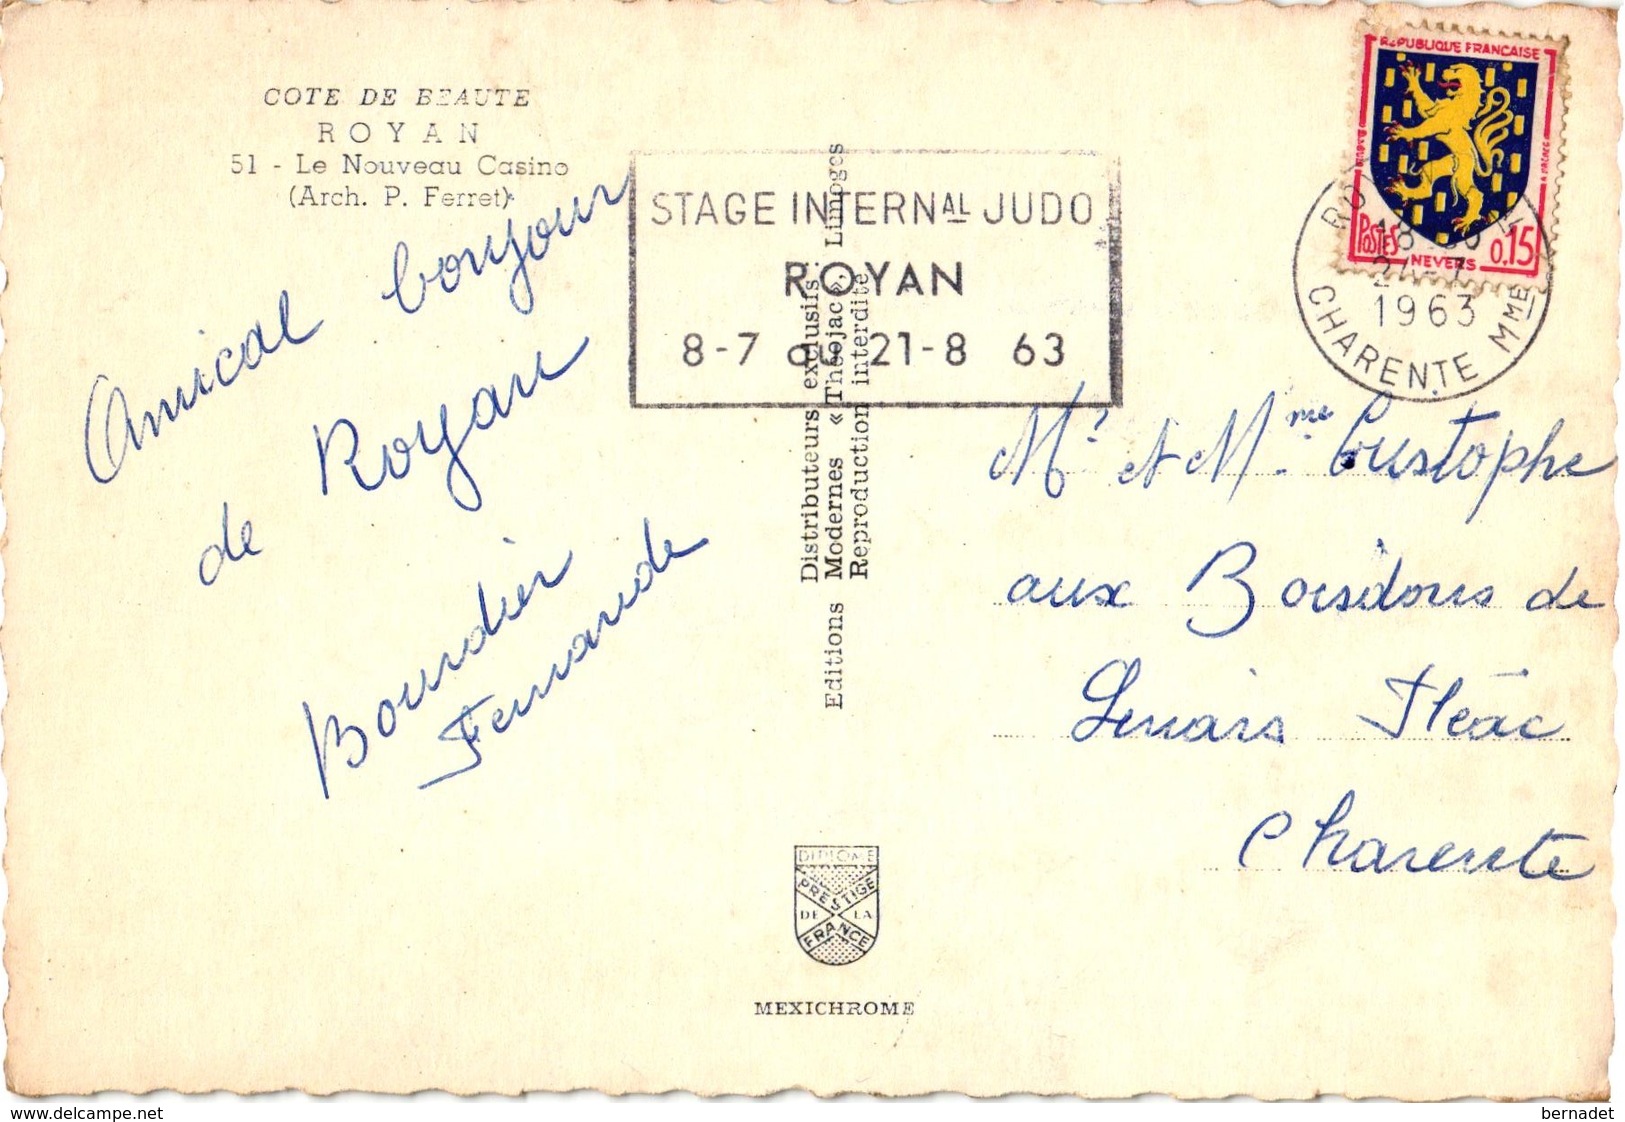 COTE DE BEAUTE
ROYAN
51 - Le Nouveau Casino
(Arch. P. Ferret)
Amical bonjour
de Royan
Bourdier
Fernande
STAGE INTERNAL JUDO
ROYAN
8-7 au 21-8 63
Distributeurs exclusifs :
Editions Modernes « Théojac » Limoges
Reproduction interdite
REPUBLIQUE FRANÇAISE
POSTES
NEVERS
0,15
1963
CHARENTE MME
Mr et Mme Coustophe
aux Boisdons de
Lenais Fléac
Charente
DIPLOME
PRESTIGE
DE LA
FRANCE
MEXICHROME
www.delcampe.net
bernadet